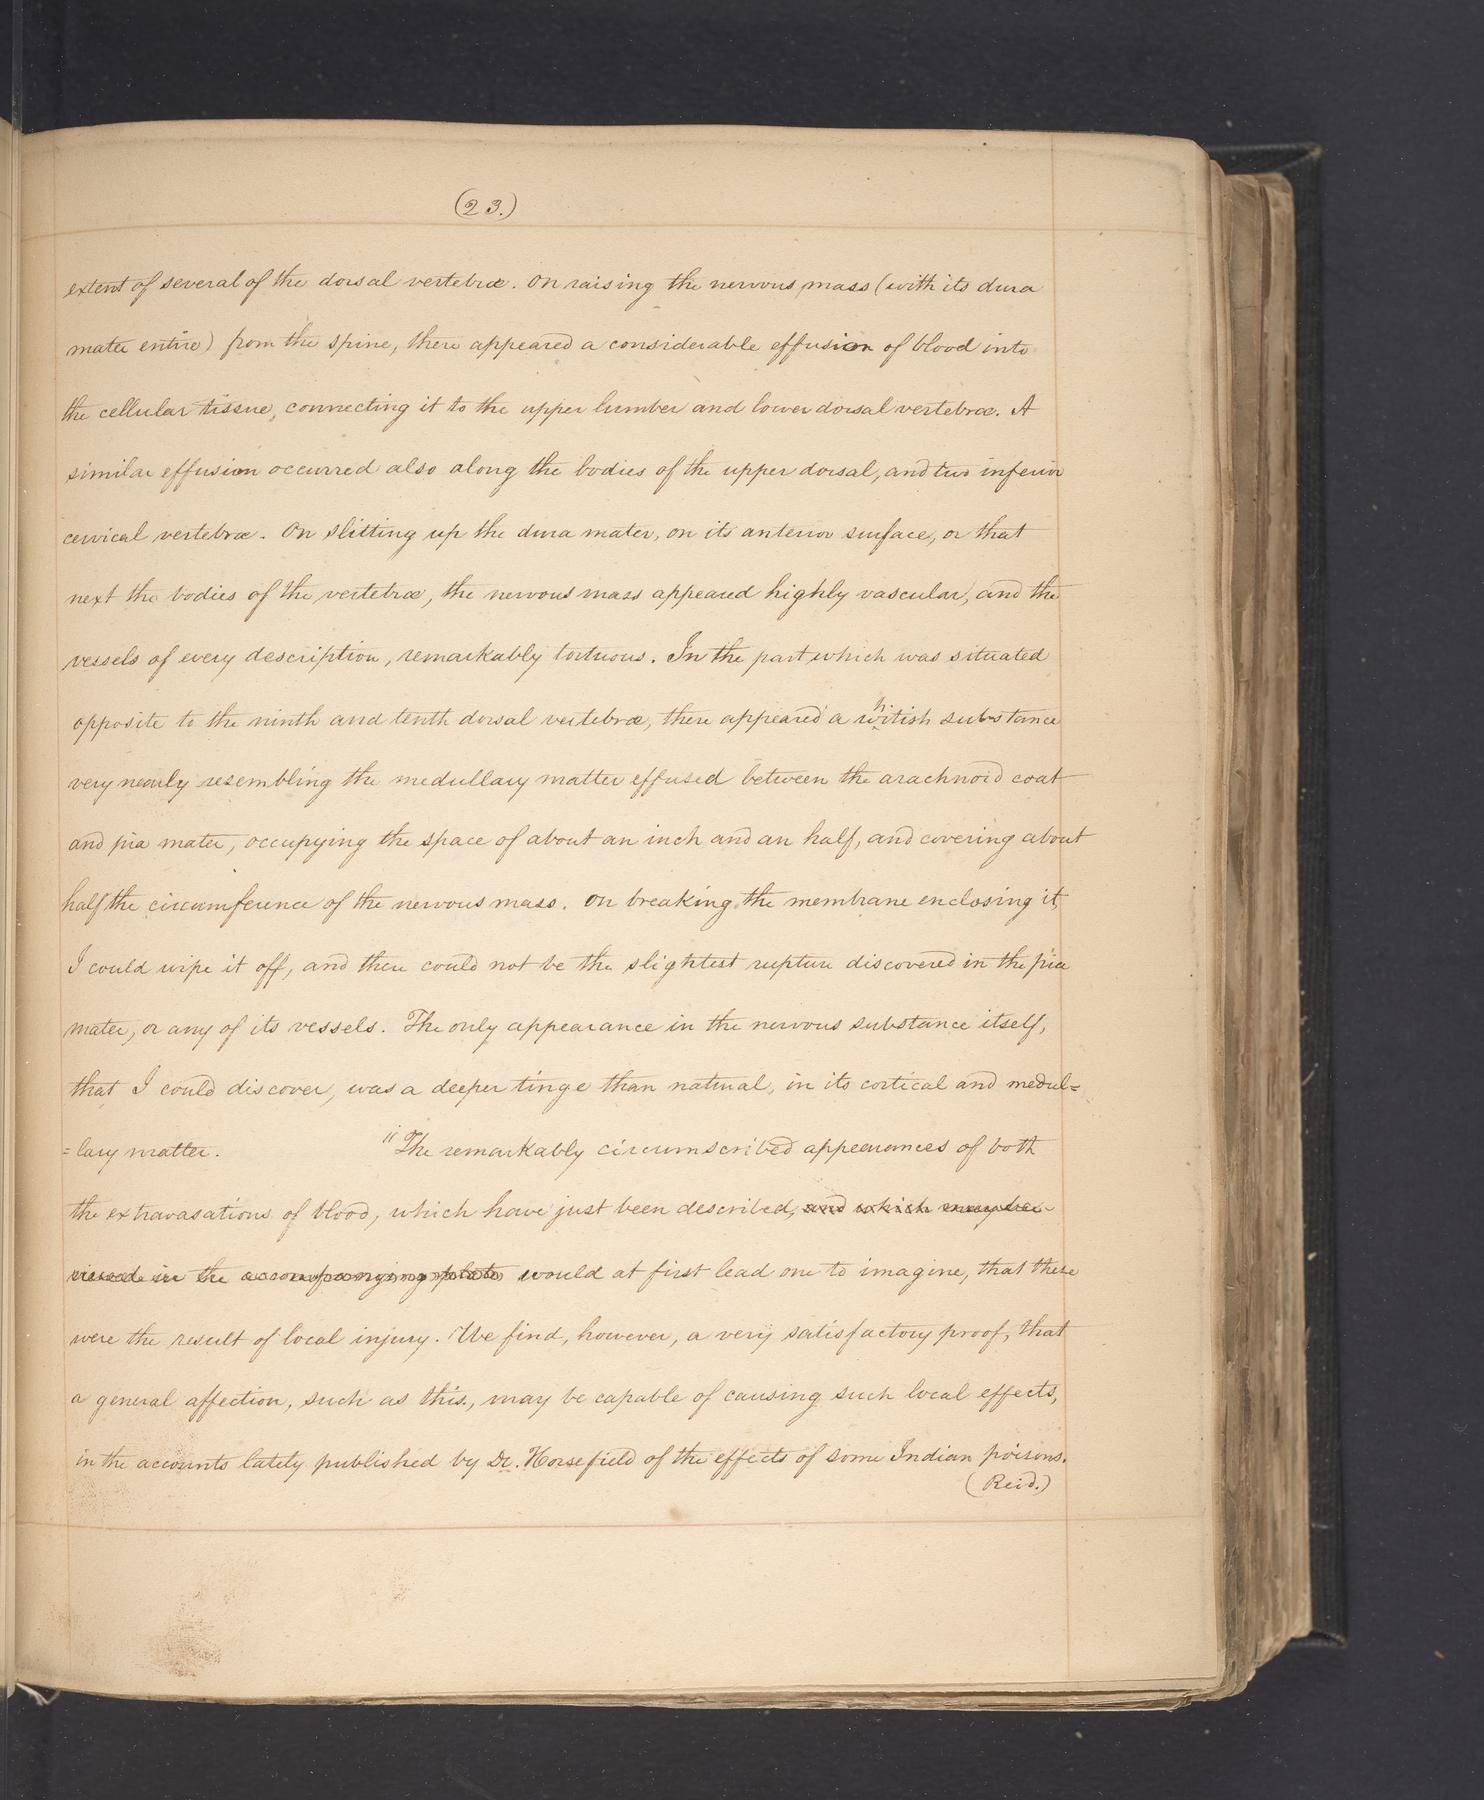 (23.)
extent of several of the dorsal vertebræ. On raising the nervous mass (with its dura
mater entire) from the spine, there appeared a considerable effusion of blood into
the cellular tissue, connecting it to the upper lumber and lower dorsal vertebræ. A
similar effusion occurred also along the bodies of the upper dorsal, and two inferior
cervical vertebræ. On slitting up the dura mater, on its anterior surface, or that
next the bodies of the vertebræ, the nervous mass appeared highly vascular, and the
vessels of every description, remarkably tortuous. In the part which was situated
opposite to the ninth and tenth dorsal vertebræ, there appeared a whitish substance
very nearly resembling the medullary matter effused between the arachnoid coat
and pia mater, occupying the space of about an inch and an half, and covering about
half the circumference of the nervous mass. On breaking the membrane enclosing it,
I could wipe it off, and there could not be the slightest rupture discovered in the pia
mater, or any of its vessels. The only appearance in the nervous substance itself,
that I could discover, was a deeper tinge than natural, in its cortical and medul=
=lary matter. "The remarkably circumscribed appearances of both
the extravasations of blood, which have just been described, and which may be
viewed in the accompanying plate would at first lead one to imagine, that these
were the result of local injury. We find, however, a very satisfactory proof, that
a general affection, such as this, may be capable of causing such local effects,
in the accounts lately published by Dr. Horsefield of the effects of some Indian poisons.
(Reid.)